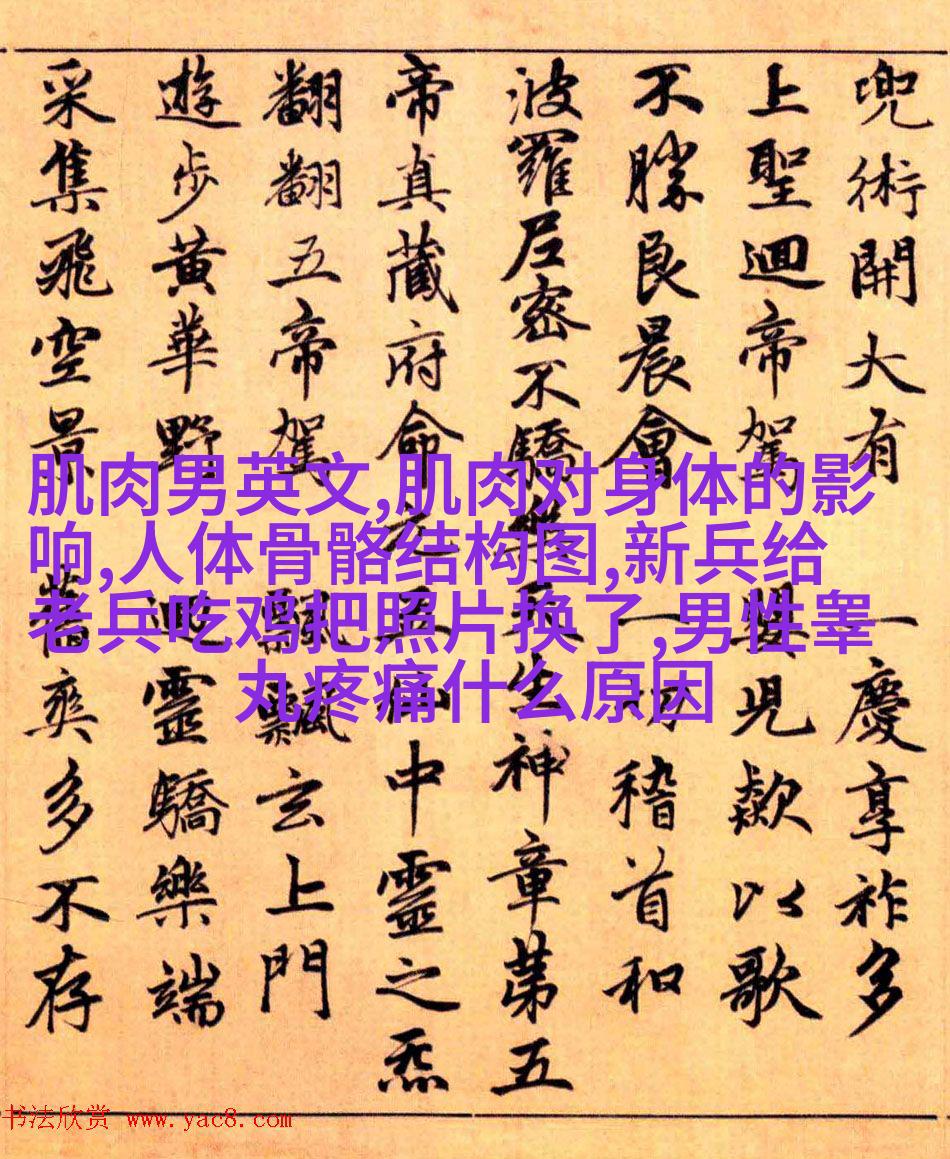 兜術開大有 一慶享祚多
上聖迴帝駕 兒歘以歌
不勝良晨會 一切稽首和
波羅尼密不驕樂天生神章第五
帝真藏府命元中靈之炁
翻翻五帝駕 飄飄玄上門
遊步黃華野 迴靈驕樂端
采集飛空景 奕多不存
肌肉男英文,肌肉对身体的影
响,人体骨骼结构图,新兵给
老兵吃鸡把照片换了,男性睾
丸疼痛什么原因
书法欣赏 www.yac8.com